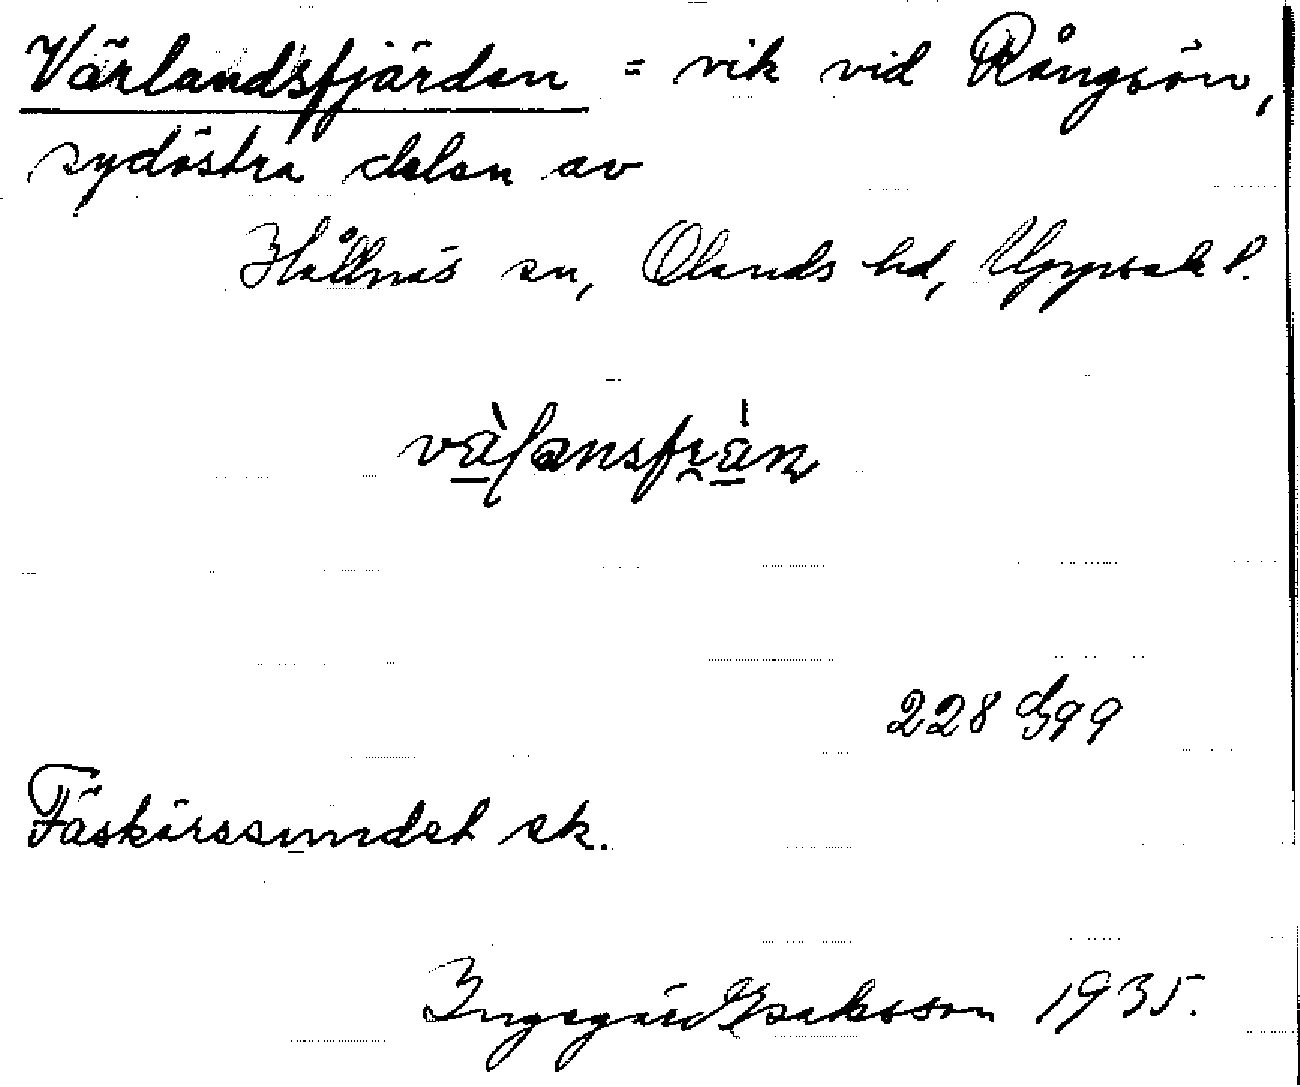 Värlandsfjärden = vik vid Rångsön,
sydöstra delen av
Hållnäs sn, Olands hd, Uppsala l.
228 G99
Fäskärssundet ek.
Ingegärd Isaksson 1935.